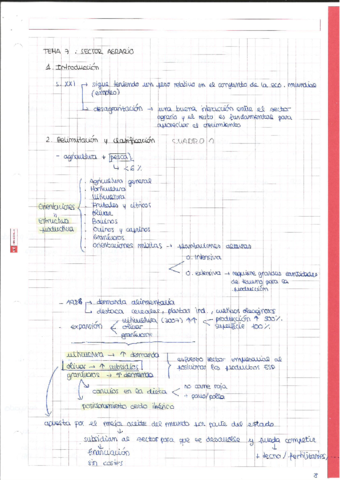 TEMA 7. SECTOR AGRARIO
1. Introducción
S. XXI → sigue teniendo un peso relativo en el conjunto de la eco. mundial
(empleo)
→ desagrarización → una buena interacción entre el sector
agrario y el resto es fundamental para
el crecimiento
2. Delimitación y clasificación CUADRO 1
- agricultura + pesca
↳ < 5%
Orientaciones
o
estructura
productiva
- Agricultura general
- Horticultura
- Viticultura
- Frutales y cítricos
- Olivar
- Bovinos
- Ovinos y caprinos
- Granívoros
- orientaciones mixtas → plantaciones
a. intensiva
a. extensiva → requiere grandes cantidades
de terreno para la
producción
→ demanda alimentaria
→ destaca cereales, plantas ind., cultivos
- expansión
viticultura ↑↑
olivar
granívoros
→ producción ↑ 300%
superficie 100%
viticultura → ↑ demanda
olivar → ↑ subsidios
granívoros → ↑ demanda
esfuerzo sector empresarial de
los productos ESP
cambios en la dieta
- no carne roja
+ pavo/pollo
posicionamiento cerdo ibérico
apuesta por el mejor aceite del mundo la parte del estado.
subsidian al sector para que se desarrolle y pueda competir
↳ financiación + tecno / fertilizantes,
en costes
8